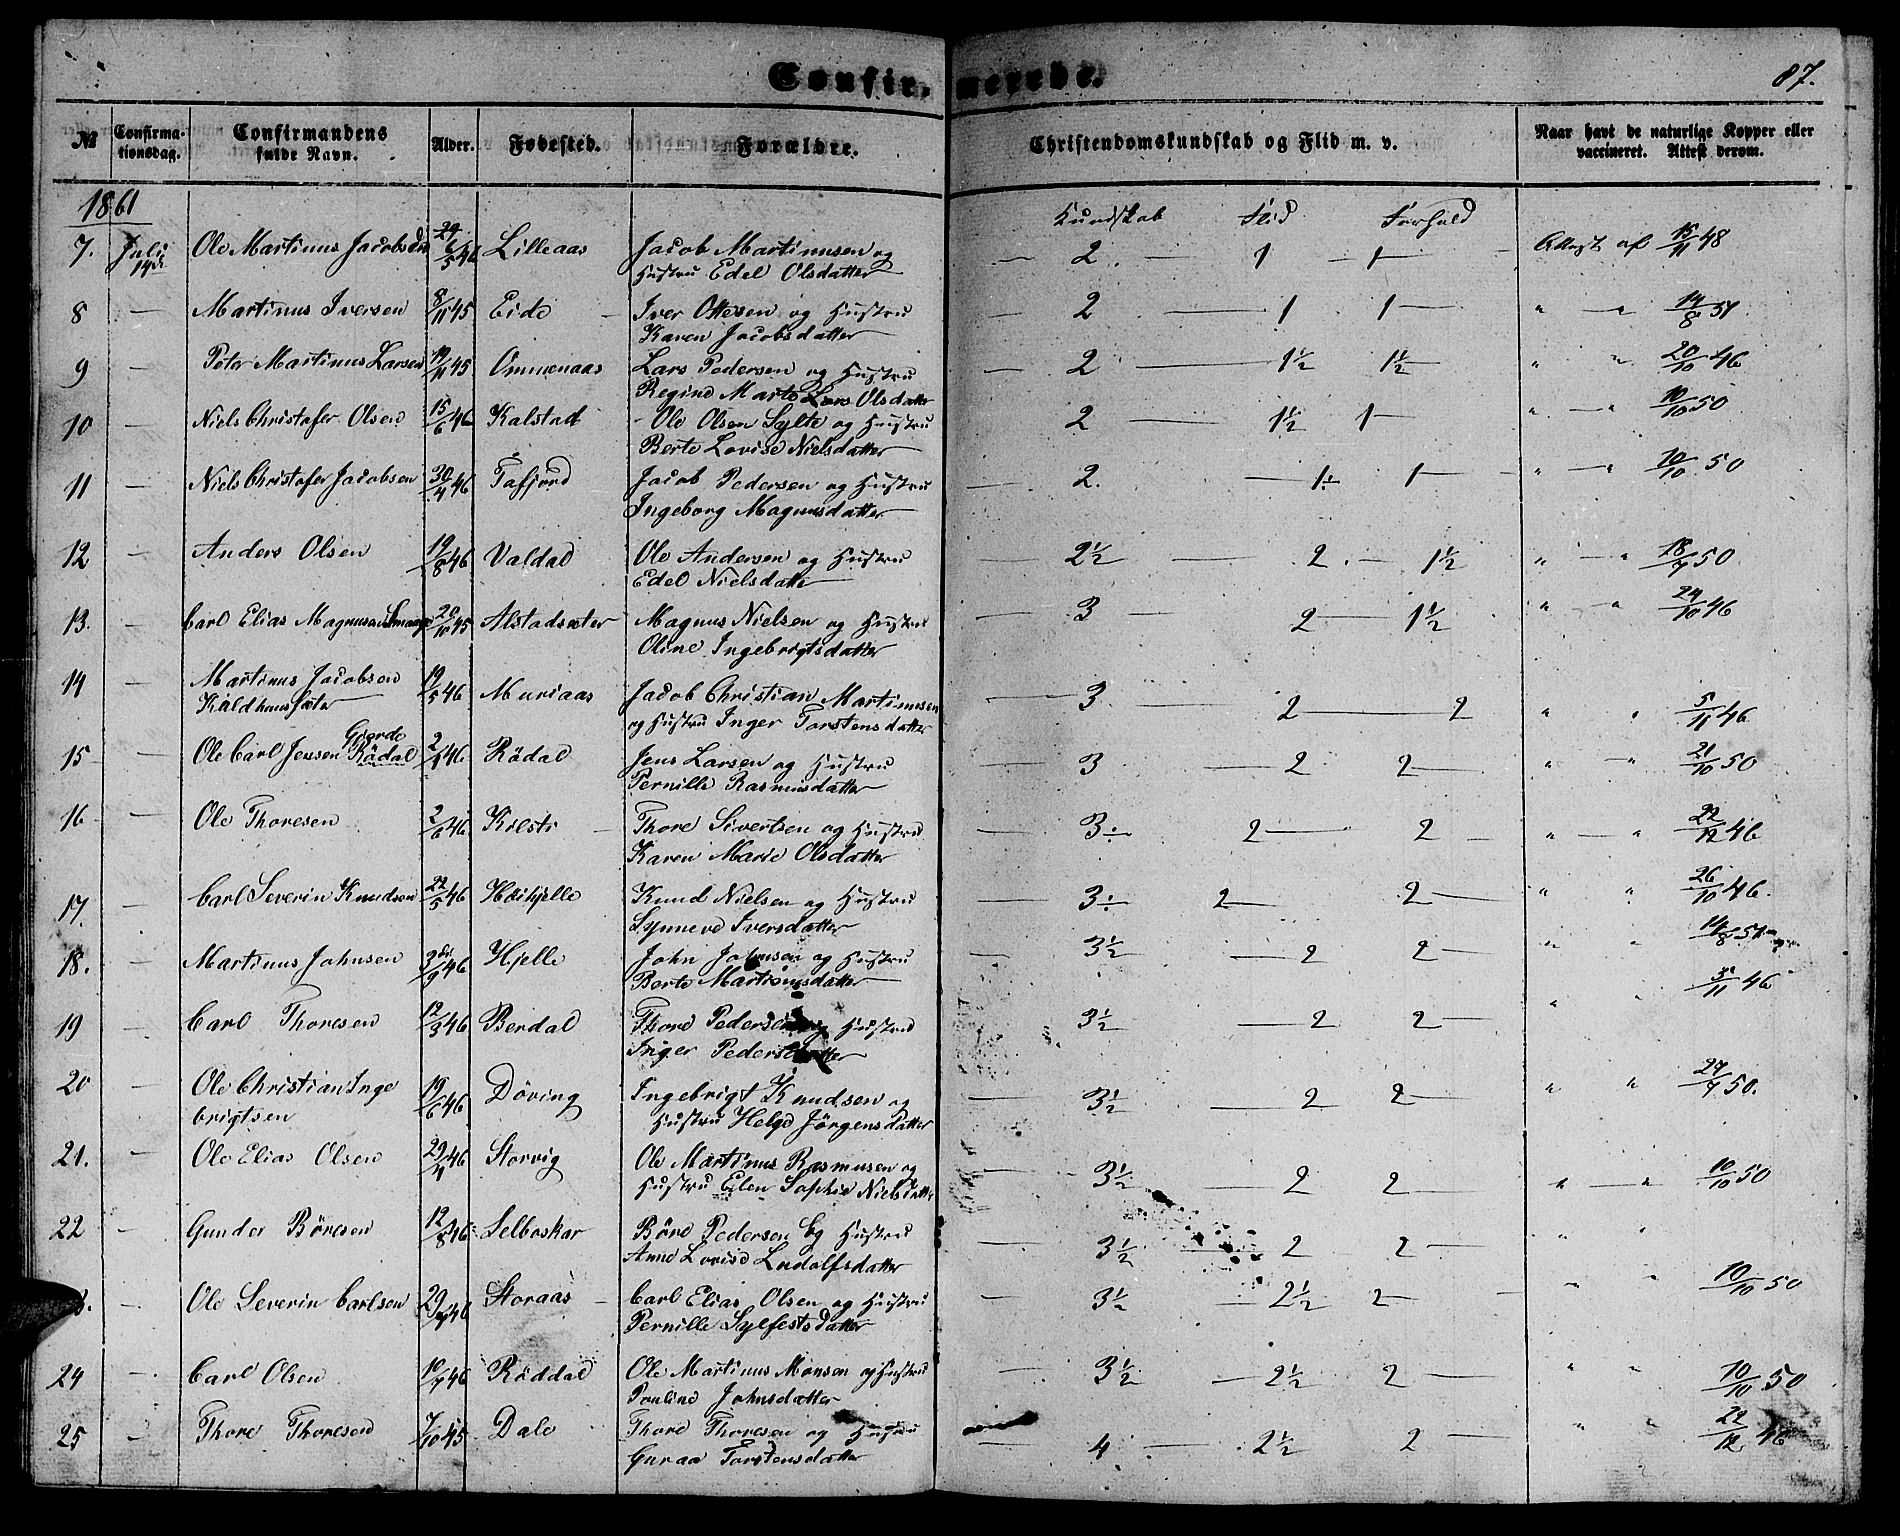 Confirmerede.
87.
№ Confirmationsdag. Confirmandens fulde Navn. Alder. Fødested. Forældre. Christendomskundskab og Flid m. v. Naar havt de naturlige Kopper eller vaccineret. Attest derom.
1861
Kundskab Flid Forhold
7. Juli 14de Ole Martinus Jacobsen Lilleaas Jacob Martinusen og 2 — 1 — 1 — Attest af 15/11 48
Hustru Edel Olsdatter
8 — Martinus Iversen 8/11 45 Eide Iver Ottesen og Hustru — 2 — 1 1 — " — " 14/8 51
Karen Jacobsdatter
9 — Peter Martinus Larsen 19/11 45 Ommenaas Lars Pedersen og Hustru — 2 — 1½ 1½ — " " 20/10 46
Regine Marte Olsdatter
10 — Niels Christofer Olsen 15/6 46 Kalstad Ole Olsen Sylte og Hustru — 2 — 1½ 1 — " — " 10/10 50
Berte Lovise Nielsdatter
11 — Niels Christofer Jacobsen 30/4 46 Tafjord Jacob Pedersen og Hustru — 2. — 1÷ 1 — " — " 10/10 50
Ingeborg Magnusdatter
12 — Anders Olsen 19/8 46 Valdal Ole Andersen og Hustru — 2½ — 2 — 1½ " — " 18/7 50
Edel Nielsdatter
13. — Carl Elias Magnusen Smaage 20/10 45 Alstadsæter Magnus Nielsen og Hustru — 3 — 2 — 1½ " — " 24/10 46
Oline Ingebrigtsdatter
14 — Martinus Jacobsen 19/5 46 Muriaas Jacob Christian Martinusen — 3. — 2 — 2 " " 5/11 46
Kaldhussæter og Hustru Inger Torstensdatter
Gjærde
15 — Ole Carl Jensen Rödal Rödal Jens Larsen og Hustru — 3 — 2 2 — " — " 21/10 50
Pernille Rasmusdatter
16 — Ole Thoresen 2/6 46 Kilsti Thore Sivertsen og Hustru — 3÷ 2 — 2 — " — " 22/12 46
Karen Marie Olsdatter
17. — Carl Severin Knudsen 22/5 46 Höihjelle Knud Nielsen og Hustru — 3÷ 2 — 2 — " " 26/10 46.
Synneve Iversdatter
18. — Martinus Johnsen Hjelle John Johnsen og Hustru — 3½ — 2 2 — " " 14/8 51
Berte Martinusdatter
19 — Carl Thoresen 12/3 46 Berdal Thore Pedersen og Hustru 3½ — 2 2 — " " 5/11 46
Inger Pedersdatter
20 — Ole Christian Inge 19/6 46 Döving Ingebrigt Knudsen og 3½ — 2 2 — " " 27/7 50.
brigtsen Hustru Helge Jörgensdatter
21. — Ole Elias Olsen Storvig Ole Martinus Rasmusen og — 3½ — 2 2 — " — " 10/10 50
Hustru Elen Sophie Nielsdatter
22 — Gunder Böresen 12/8 46 Selboskar Böre Pedersen og Hustru — 3½ — 2 2 — " "
Anne Lovise Ludolfsdatter
— Ole Severin Carlsen Storaas Carl Elias Olsen og Hustru — 3½ — 2½ 2 — " " 10/10 50
Pernille Sylfestsdatter
24 — Carl Olsen 10/7 46 Röddal Ole Martinus Monsen og Hustru — 3½ — 2½ 2 — " " 10/10 50
Pouline Johnsdatter
25 — Thore Thoresen 7/10 45 Dale Thore Thoresen og Hustru — 4 — 2½ 2 — " " 22/12 46
Guraa Torstensdatter